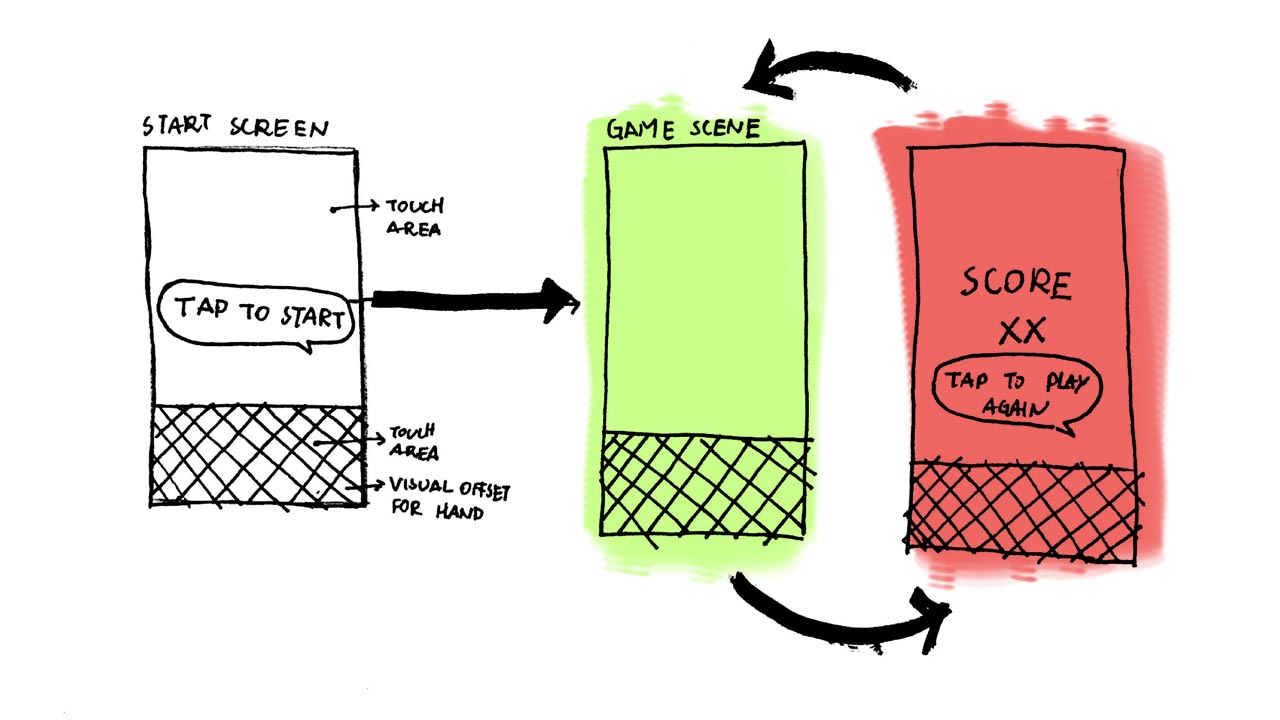 START SCREEN
TOUCH
AREA
TAP TO START
TOUCH
AREA
VISUAL OFFSET
FOR HAND
GAME SCENE
SCORE
XX
TAP TO PLAY
AGAIN